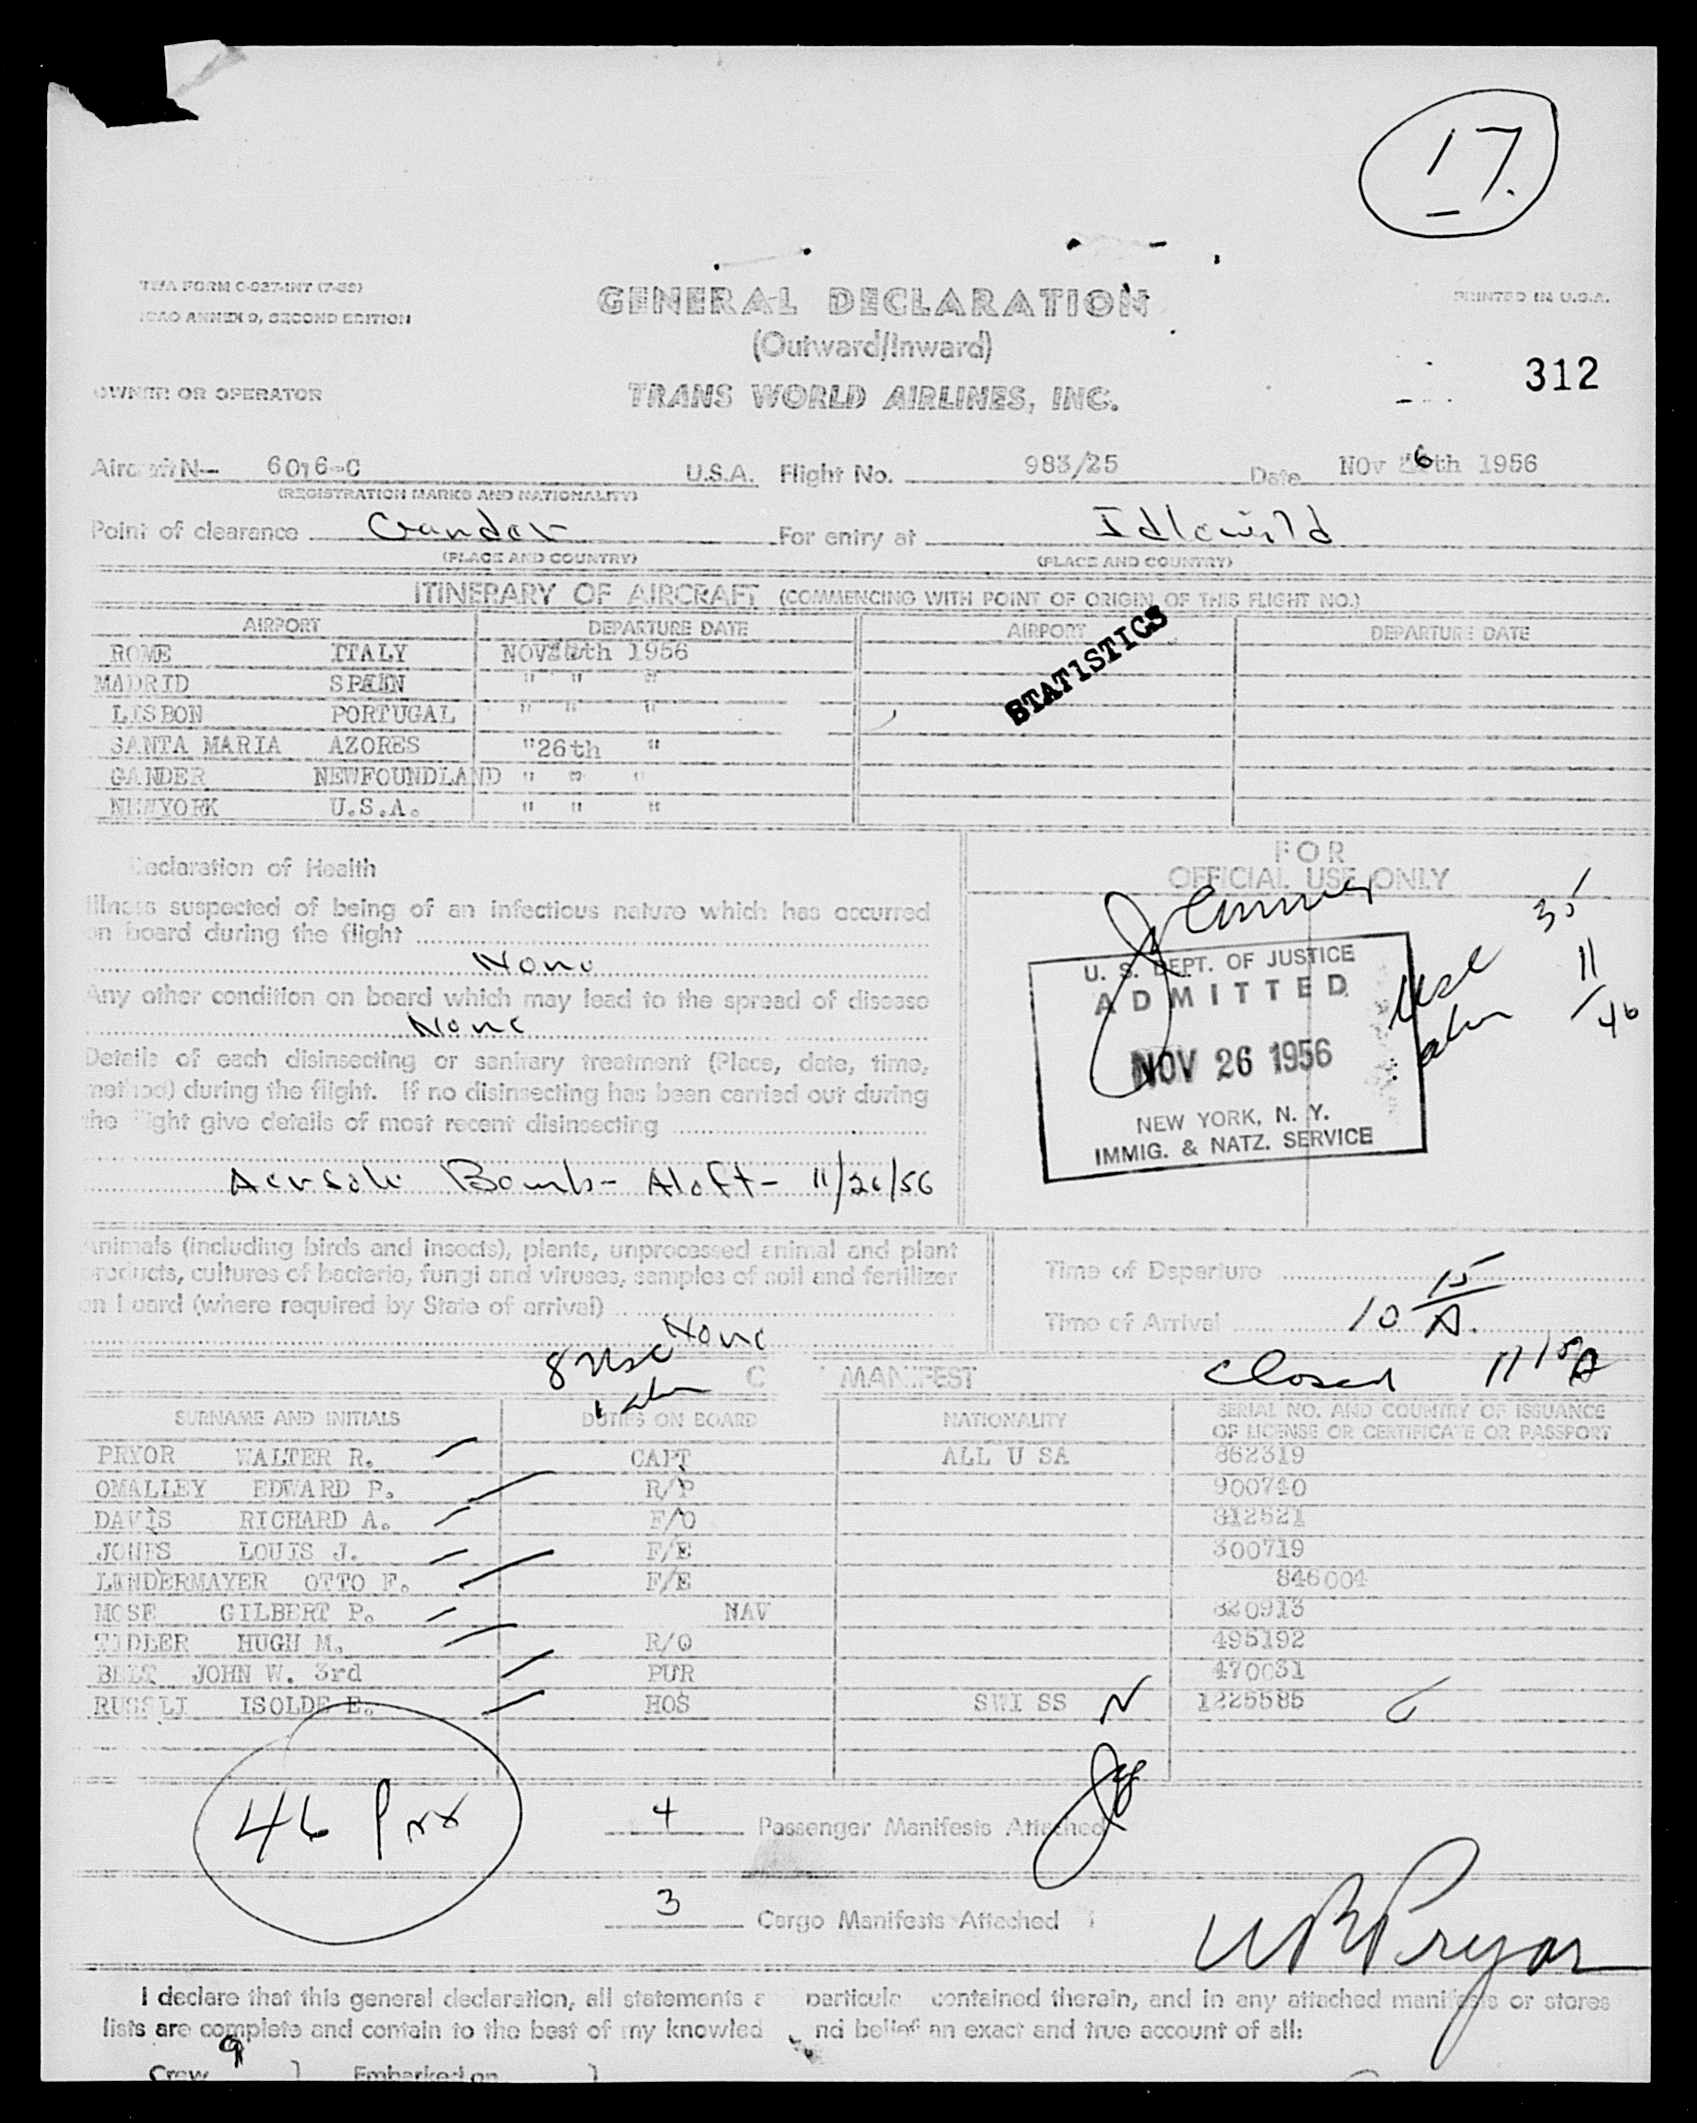 17.
TWA FORM C-927-INT (7-55)
ICAO ANNEX 9, SECOND EDITION
PRINTED IN U.S.A.
GENERAL DECLARATION
(Outward/Inward)
312
OWNER OR OPERATOR
TRANS WORLD AIRLINES, INC.
Aircraft N- 6016-C U.S.A. Flight No. 983/25 Date NOV 26th 1956
(REGISTRATION MARKS AND NATIONALITY)
Point of clearance Gander For entry at Idlewild
(PLACE AND COUNTRY) (PLACE AND COUNTRY)
ITINERARY OF AIRCRAFT (COMMENCING WITH POINT OF ORIGIN OF THIS FLIGHT NO.)
AIRPORT DEPARTURE DATE AIRPORT DEPARTURE DATE
STATISTICS
ROME ITALY NOV th 1956
MADRID SPAIN " " "
LISBON PORTUGAL " " "
SANTA MARIA AZORES "26th "
GANDER NEWFOUNDLAND " " "
NEWYORK U.S.A. " " "
Declaration of Health
Illness suspected of being of an infectious nature which has occurred
on board during the flight
None
Any other condition on board which may lead to the spread of disease
None
Details of each disinsecting or sanitary treatment (Place, date, time,
method) during the flight. If no disinsecting has been carried out during
the flight give details of most recent disinsecting
Aerosole Bomb- Aloft- 11/26/56
FOR
OFFICIAL USE ONLY
U. S. DEPT. OF JUSTICE
ADMITTED
NOV 26 1956
NEW YORK, N. Y.
IMMIG. & NATZ. SERVICE
usc 35
aln 11
46
Animals (including birds and insects), plants, unprocessed animal and plant
products, cultures of bacteria, fungi and viruses, samples of soil and fertilizer
on board (where required by State of arrival)
None
Time of Departure
Time of Arrival 10 15 A.
8 usc
1 aln
C MANIFEST
Closed 11 15 A
SURNAME AND INITIALS DUTIES ON BOARD NATIONALITY SERIAL NO. AND COUNTRY OF ISSUANCE
OF LICENSE OR CERTIFICATE OR PASSPORT
PRYOR WALTER R. CAPT ALL U SA 862319
OMALLEY EDWARD P. R/P 900740
DAVIS RICHARD A. F/O 312521
JONES LOUIS J. F/E 300719
LINDERMAYER OTTO F. F/E 846004
MOSE GILBERT P. NAV 820913
TIDLER HUGH M. R/O 495192
BELT JOHN W. 3rd PUR 470031
ISOLDE E. HOS SWI SS 1225585
46
4 Passenger Manifests Attached
3 Cargo Manifests Attached
WRPryor
I declare that this general declaration, all statements a particula contained therein, and in any attached manifests or stores
lists are complete and contain to the best of my knowled nd belief an exact and true account of all:
9
Crew Embarked on